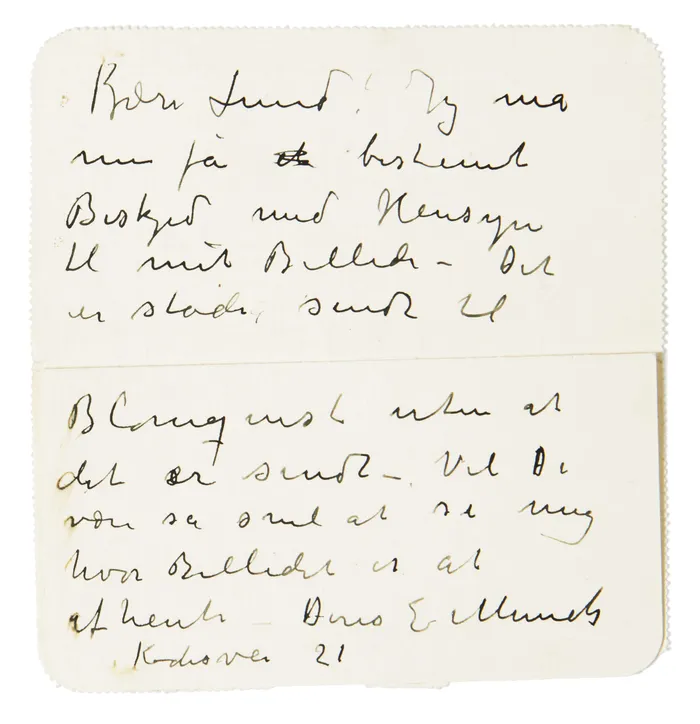 Kjære Lund! Jeg må
nu få bestemt
Beskjed med Hensyn
til mit Billede – Det
er stadi, sendt til
Blomqvist uten at
det er sendt – Vil De
være så snil at si mig
hvor Billedet er at
afhente – Deres E Munch